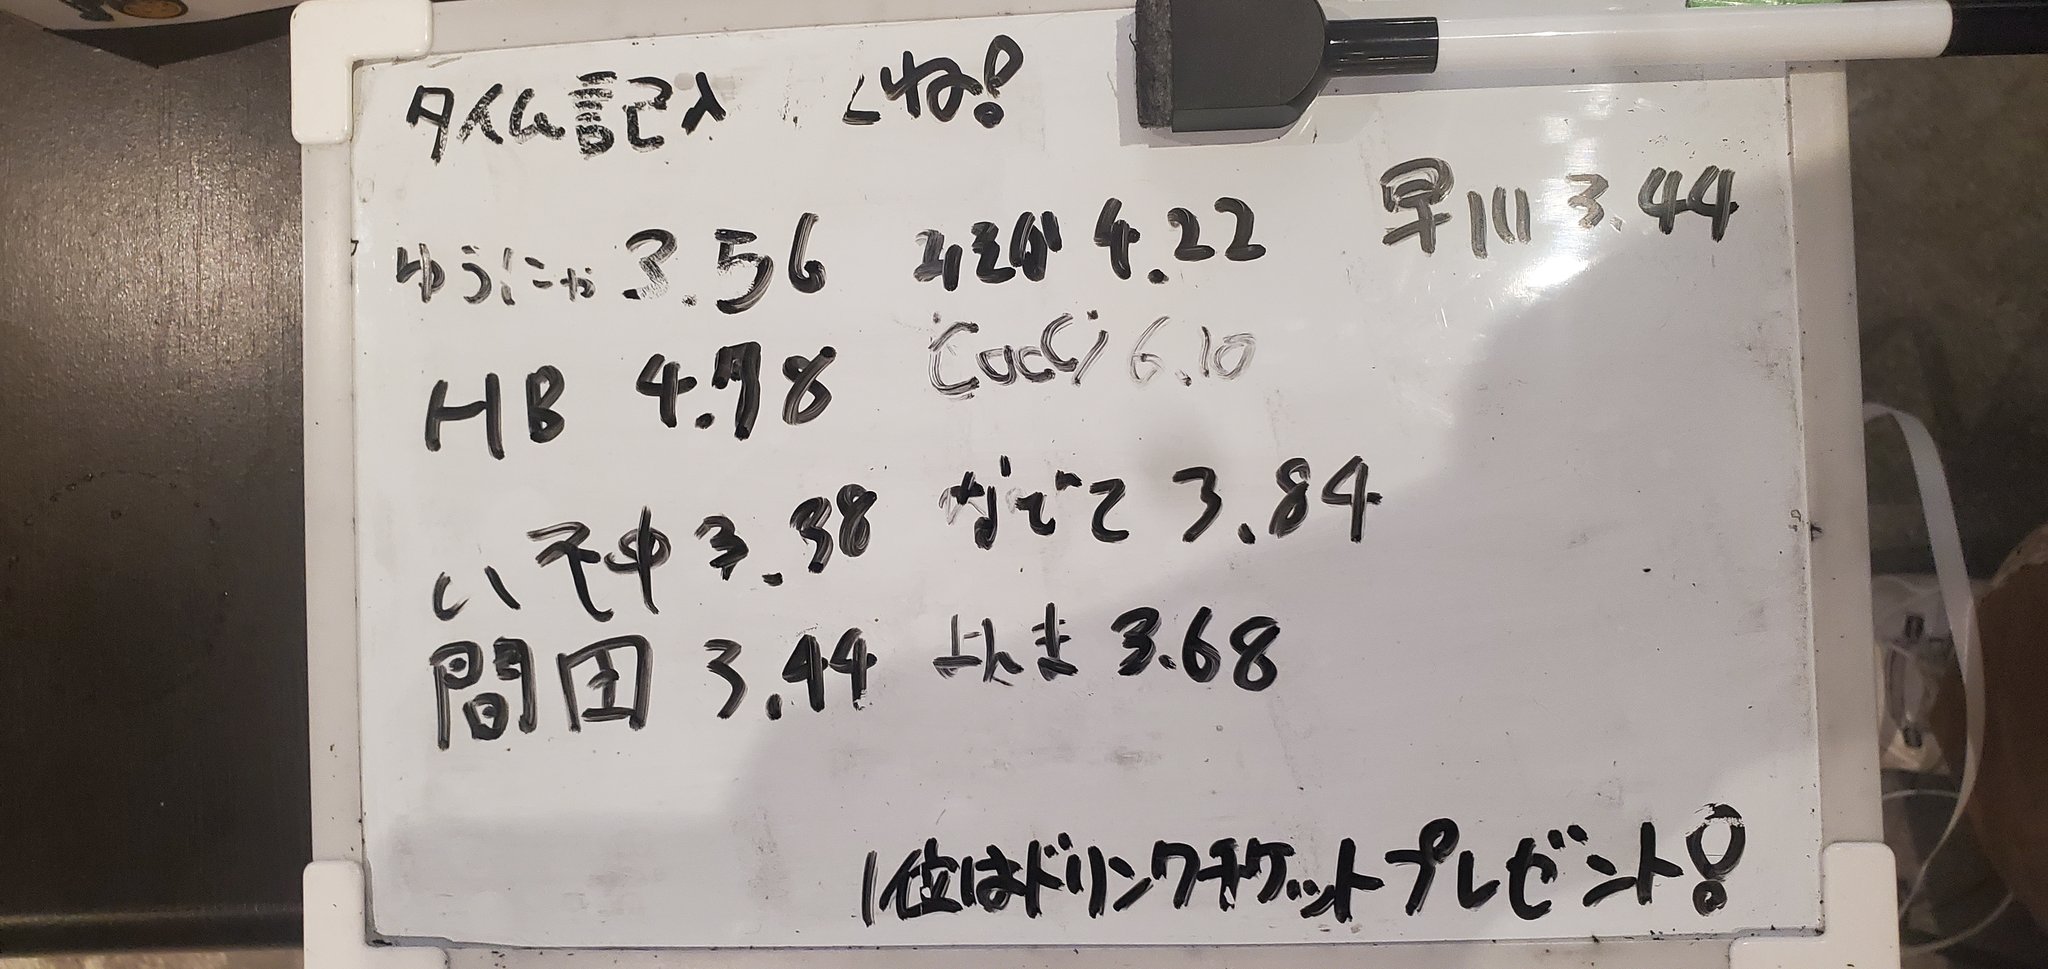 タイム記入 してね!
ゆうにゃ 3.56
HB 4.78
いそゆ 3.38
間田 3.44
みそか 4.22
CocCi 6.10
なでこ 3.84
3.68
早川 3.44
1位はドリンクチケットプレゼント!